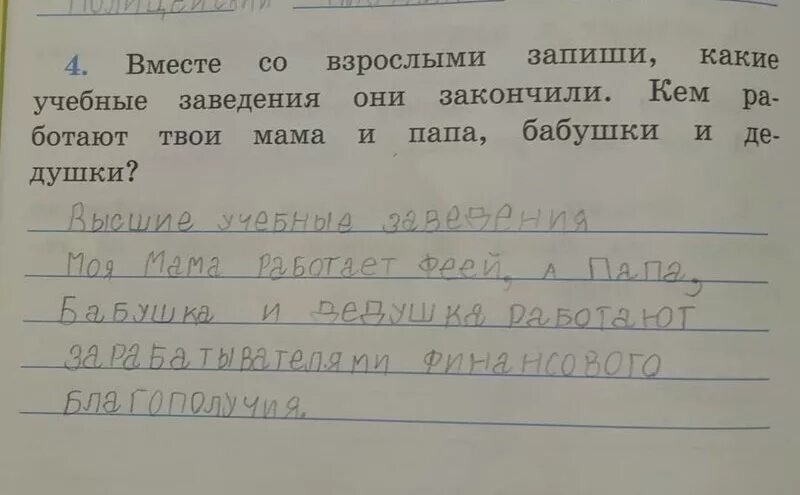 4. Вместе со взрослыми запиши, какие
учебные заведения они закончили. Кем ра-
ботают твои мама и папа, бабушки и де-
душки?
Высшие учебные заведения
Моя Мама работает феей, а Папа,
Бабушка и дедушка работают
зарабатывателями финансового
благополучия.